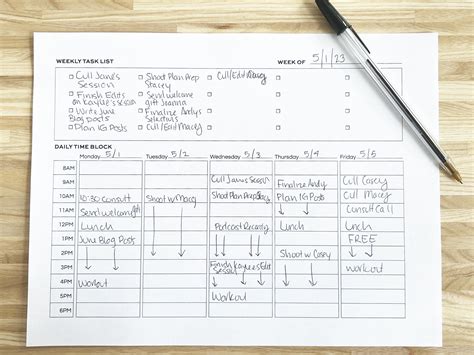 WEEKLY TASK LIST
WEEK OF 5/1/23
Cull Jane's Session
Finish Edits on Kaylee's session
Write June Blog posts
Plan IG Posts
Shoot Plan Prep Stacey
Send welcome gift Joanna
Finalize Andy Selections
Cull/Edit Macey
Cull/Edit Macey
DAILY TIME BLOCK
Monday 5/1
Tuesday 5/2
Wednesday 5/3
Thursday 5/4
Friday 5/5
8AM
9AM Cull Jane's Session Finalize Andy Cull Casey
10AM 10:30 Consult Shoot w/ Shoot Plan Prep Plan IG Posts Cull Macey
11AM Send welcome gift Consult Call
12PM Lunch Podcast Lunch Lunch
1PM June Blog Posts FREE
2PM Shoot w/ Casey
3PM Finish Kaylee's Edit Session workout
4PM Workout
5PM Workout
6PM